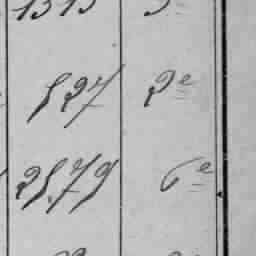 1313 3e
527 2e
2579 6e